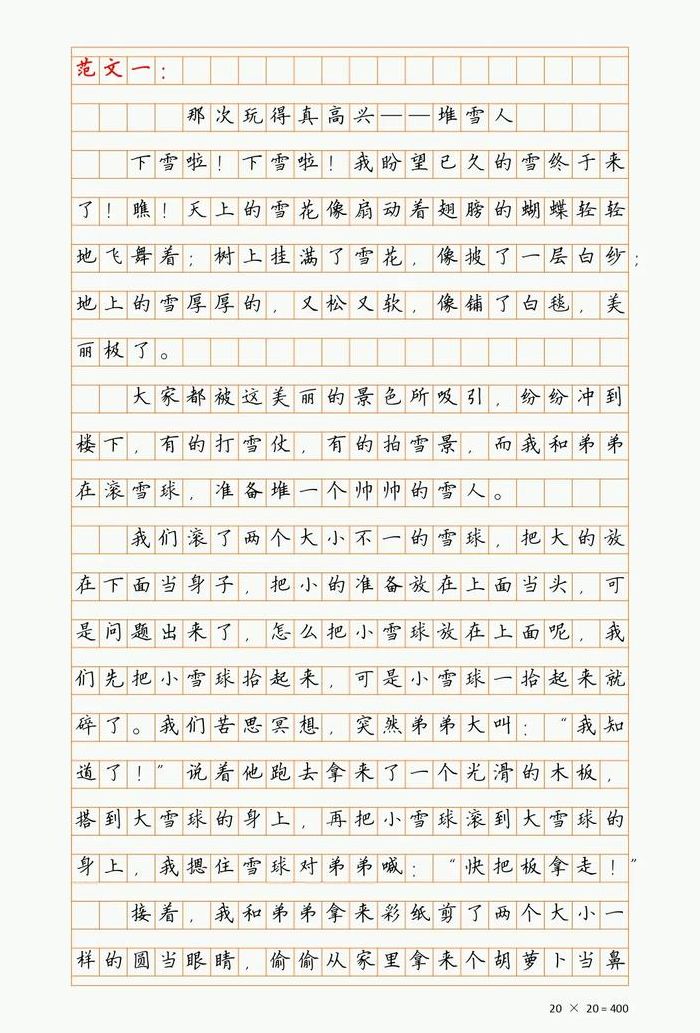 范文一：
那次玩得真高兴——堆雪人
下雪啦！下雪啦！我盼望已久的雪终于来
了！瞧！天上的雪花像扇动着翅膀的蝴蝶轻轻
地飞舞着；树上挂满了雪花，像披了一层白纱；
地上的雪厚厚的，又松又软，像铺了白毯，美
丽极了。
大家都被这美丽的景色所吸引，纷纷冲到
楼下，有的打雪仗，有的拍雪景，而我和弟弟
在滚雪球，准备堆一个帅帅的雪人。
我们滚了两个大小不一的雪球，把大的放
在下面当身子，把小的准备放在上面当头，可
是问题出来了，怎么把小雪球放在上面呢，我
们先把小雪球抬起来，可是小雪球一抬起来就
碎了。我们苦思冥想，突然弟弟大叫：“我知
道了！”说着他跑去拿来了一个光滑的木板，
搭到大雪球的身上，再把小雪球滚到大雪球的
身上，我摁住雪球对弟弟喊：“快把板拿走！”
接着，我和弟弟拿来彩纸剪了两个大小一
样的圆当眼睛，偷偷从家里拿来个胡萝卜当鼻
20 × 20＝400